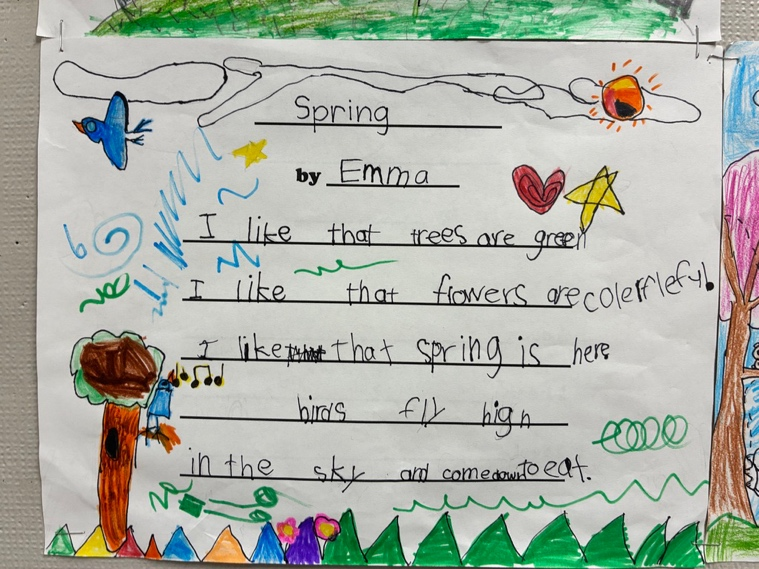 Spring
by Emma
I like that trees are green
I like that flowers are colerfleful.
I like that spring is here
birds fly high
in the sky and come down to eat.